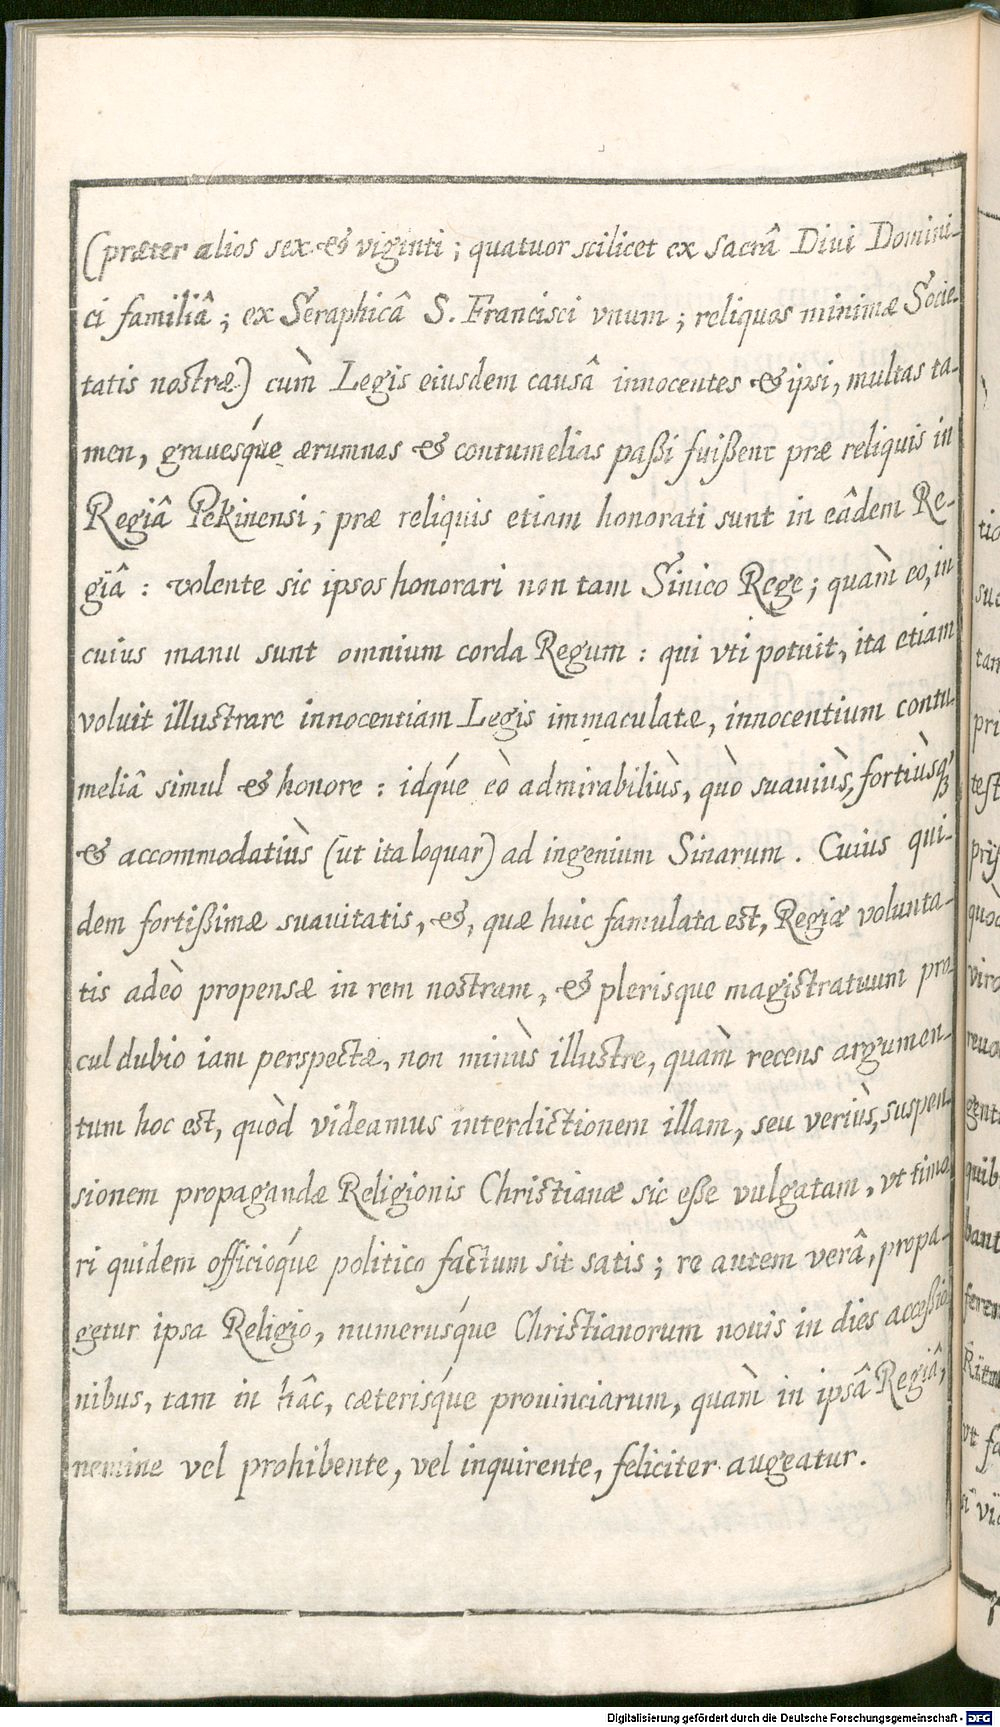 (præter alios sex & viginti ; quatuor scilicet ex sacrâ Diui Domini-
ci familiâ ; ex Seraphicâ S. Francisci vnum ; reliquos minimæ Socie-
tatis nostræ) cùm Legis eiusdem causâ innocentes & ipsi, multas ta-
men, grauesq́ue ærumnas & contumelias paßi fuißent præ reliquis in
Regiâ Pekinensi ; præ reliquis etiam honorati sunt in eâdem Re-
giâ : volente sic ipsos honorari non tam Sinico Rege ; quàm eo, in
cuius manu sunt omnium corda Regum : qui vti potuit, ita etiam
voluit illustrare innocentiam Legis immaculatæ, innocentium contu-
meliâ simul & honore : idq́ue eò admirabiliùs, quò suauiùs, fortiùsq́
& accommodatiùs (ut ita loquar) ad ingenium Sinarum . Cuius qui-
dem fortißimæ suauitatis, &, quæ huic famulata est, Regiæ volunta-
tis adeò propensæ in rem nostram, & plerisque magistratuum pro-
cul dubio iam perspectæ, non minùs illustre, quàm recens argumen-
tum hoc est, quòd videamus interdictionem illam, seu veriùs, suspen-
sionem propagandæ Religionis Christianæ sic eße vulgatam, vt timo
ri quidem officioq́ue politico factum sit satis ; re autem verâ, propa-
getur ipsa Religio, numerusq́ue Christianorum nouis in dies acceßio
nibus, tam in hâc, cæterisq́ue prouinciarum, quàm in ipsâ Regiâ,
nemine vel prohibente, vel inquirente, feliciter augeatur.
tio
sua
tan
pri
test
prij
quòd
viro
reuo
genti
quib
bant
feren
vt fa
Digitalisierung gefördert durch die Deutsche Forschungsgemeinschaft - DFG